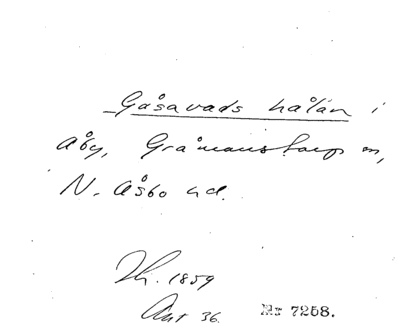 Gåsavads hålan i
Åby, Gråmanstorp sn,
N. Åsbo hd.
Th. 1859
Ant 36. Nr 7258.